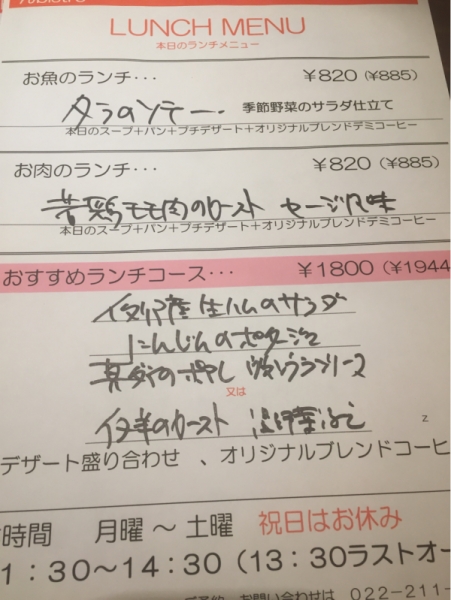 LUNCH MENU
本日のランチメニュー
お魚のランチ・・・ ¥820 (¥885)
タラのソテー 季節野菜のサラダ仕立て
本日のスープ+パン+プチデザート+オリジナルブレンドデミコーヒー
お肉のランチ・・・ ¥820 (¥885)
若鶏モモ肉のロースト セージ風味
本日のスープ+パン+プチデザート+オリジナルブレンドデミコーヒー
おすすめランチコース・・・ ¥1800 (¥1944
イタリア産生ハムのサラダ
にんじんのポタージュ
真ダイのポワレ ヴァンブランソース
又は
仔羊のロースト
デザート盛り合わせ 、オリジナルブレンドコーヒ
時間 月曜～土曜 祝日はお休み
1:30～14:30 (13:30ラストオー
ご予約 お問い合わせは 022-211-